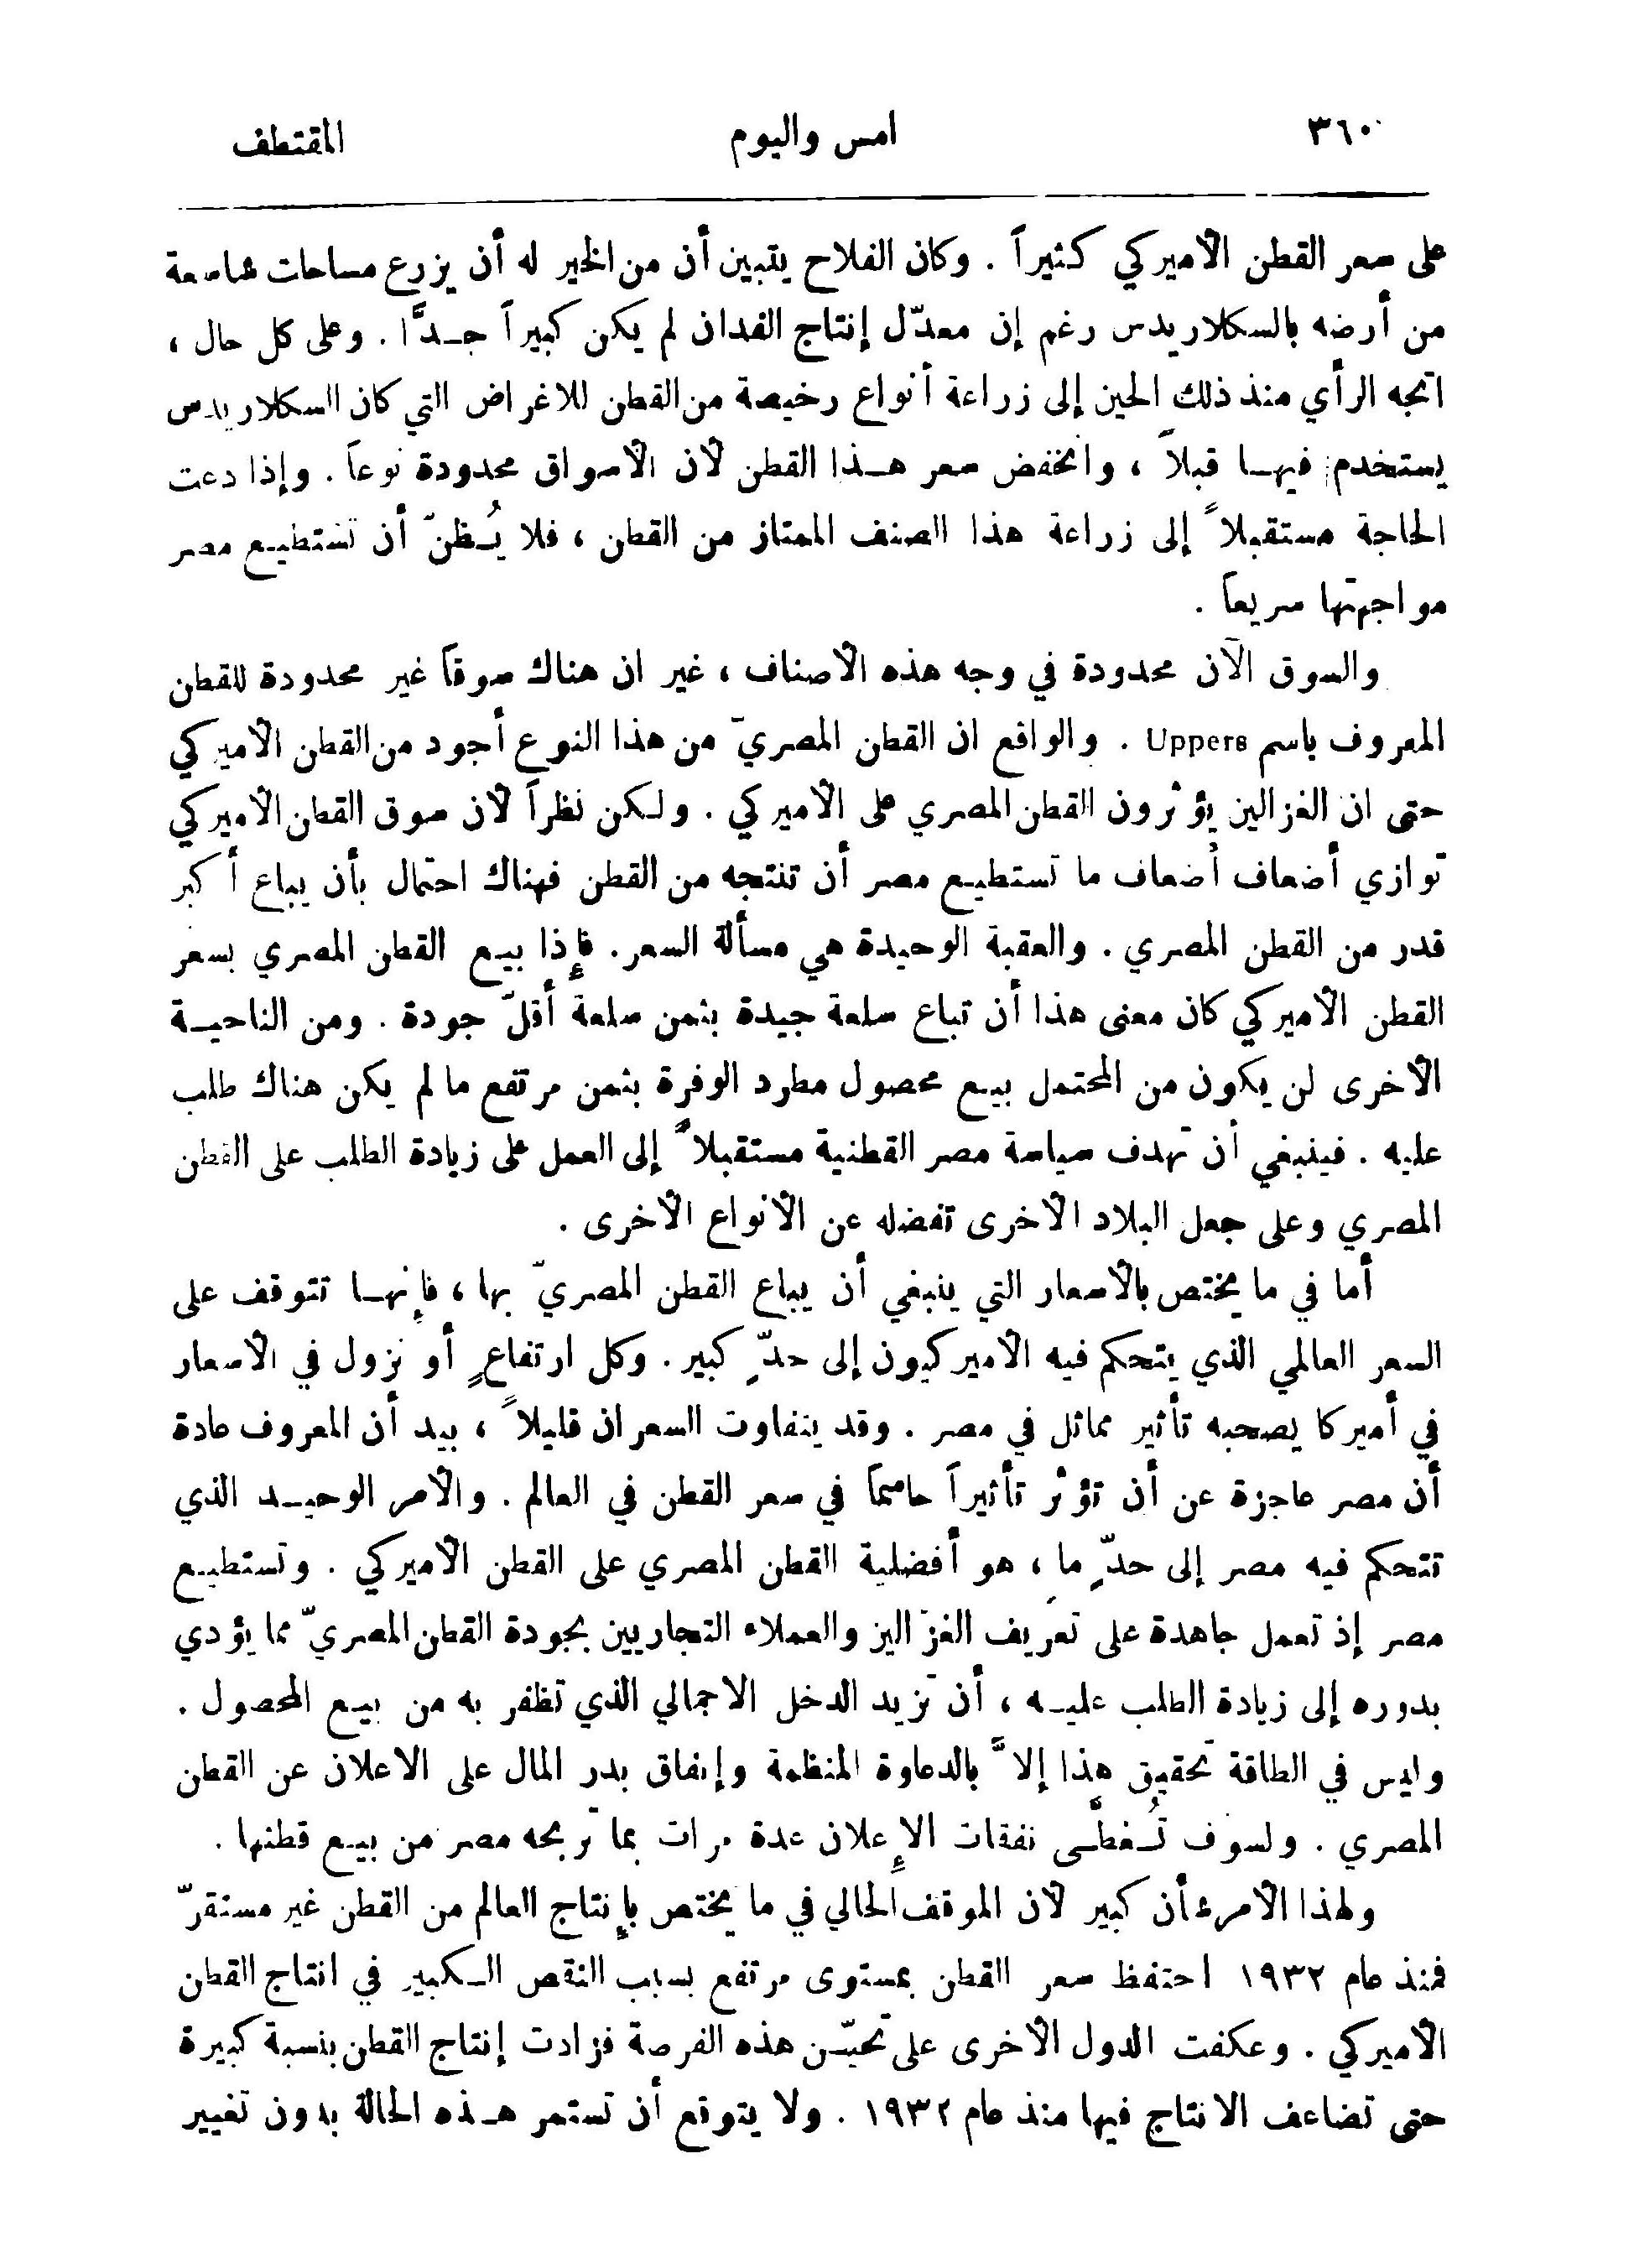 ٣٦٠ امس واليوم المقتطف
على سعر القطن الأميركي كثيراً . وكان الفلاح يتبين أن من الخير له أن يزرع مساحات شاسعة
من أرضه بالسكلاريدس رغم إن معدّل إنتاج الفدان لم يكن كبيراً جـدًّا . وعلى كل حال ،
اتجه الرأي منذ ذلك الحين إلى زراعة أنواع رخيصة من القطن للاغراض التي كان السكلاريدس
يستخدم فيهـا قبلاً ، وانخفض سعر هـذا القطن لأن الأسواق محدودة نوعاً . وإذا دعت
الحاجة مستقبلاً إلى زراعة هذا الصنف الممتاز من القطن ، فلا يُـظنّ أن تستطيـع مصر
مواجهتها سريعاً .
والسوق الآن محدودة في وجه هذه الأصناف ، غير ان هناك سوقاً غير محدودة للقطن
المعروف باسم Uppers . والواقع ان القطن المصريّ من هذا النوع أجود من القطن الأميركي
حتى ان الغزالين يؤثرون القطن المصري على الأميركي . ولـكن نظراً لأن سوق القطن الأميركي
توازي أضعاف أضعاف ما تستطيـع مصر أن تنتجه من القطن فهناك احتمال بأن يباع أكبر
قدر من القطن المصري . والعقبة الوحيدة هي مسألة السعر . فإذا بيـع القطن المصري بسعر
القطن الأميركي كان معنى هذا أن تباع سلعة جيدة بثمن سلعة أقلّ جودة . ومن الناحيـة
الأخرى لن يكون من المحتمل بيـع محصول مطرد الوفرة بثمن مرتفع ما لم يكن هناك طلب
عليه . فينبغي أن تهدف سياسة مصر القطنية مستقبلاً إلى العمل على زيادة الطلب على القطن
المصري وعلى جعل البلاد الأخرى تفضله عن الأنواع الأخرى .
أما في ما يختص بالأسعار التي ينبغي أن يباع القطن المصريّ بها ، فإنهـا تتوقف على
السعر العالمي الذي يتحكم فيه الأميركيون إلى حدّ كبير . وكل ارتفاعٍ أو نزول في الأسعار
في أميركا يصحبه تأثير مماثل في مصر . وقد يتفاوت السعران قليلاً ، بيد أن المعروف عادة
أن مصر عاجزة عن أن تؤثر تأثيراً حاسماً في سعر القطن في العالم . والأمر الوحيـد الذي
تتحكم فيه مصر إلى حدّ ما ، هو أفضلية القطن المصري على القطن الأميركي . وتستطيـع
مصر إذ تعمل جاهدة على تعريف الغزّالين والعملاء التجاريين بجودة القطن المصريّ مما يؤدي
بدوره إلى زيادة الطلب عليـه ، أن تزيد الدخل الاجمالي الذي تظفر به من بيـع المحصول .
وليس في الطاقة تحقيق هذا إلاَّ بالدعاوة المنظمة وإنفاق بدر المال على الاعلان عن القطن
المصري . ولسوف تُـغطَّـى نفقات الإعلان عدة مرات بما تربحه مصر من بيـع قطنها .
ولهذا الأمر شأن كبير لأن الموقف الحالي في ما يختص بإنتاج العالم من القطن غير مستقرّ
فمنذ عام ١٩٣٢ احتفظ سعر القطن بمستوى مرتفع بسبب النقص الـكبير في انتاج القطن
الأميركي . وعكفت الدول الأخرى على تحيّـن هذه الفرصة فزادت إنتاج القطن بنسبة كبيرة
حتى تضاعف الانتاج فيها منذ عام ١٩٣٢ . ولا يتوقع أن تستمر هـذه الحالة بدون تغيير